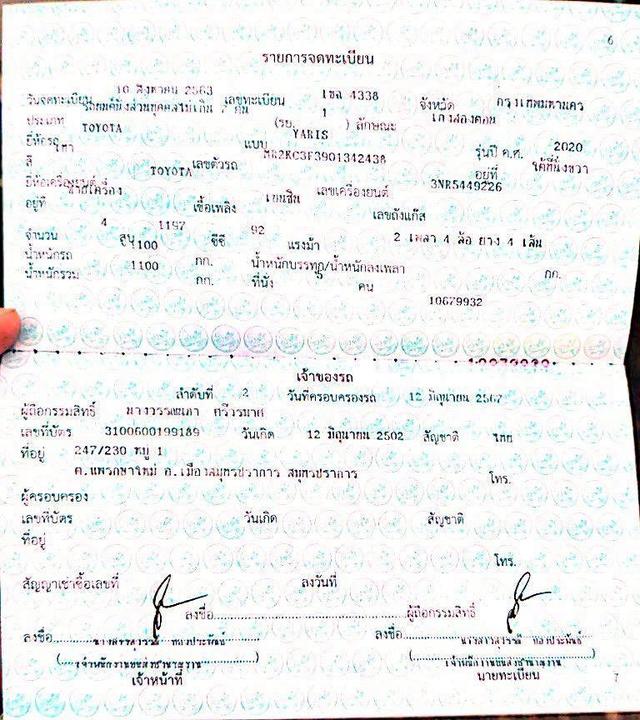 6
รายการจดทะเบียน
วันจดทะเบียน 10 สิงหาคม 2563 เลขทะเบียน 4338 จังหวัด กรุงเทพมหานคร
ประเภท รถยนต์นั่งส่วนบุคคลไม่เกิน 7 คน (รย. 1 ) ลักษณะ เก๋งสองตอน
ยี่ห้อรถ TOYOTA แบบ YARIS รุ่นปี ค.ศ. 2020
สี เทา เลขตัวรถ MR2KC3F3901342438 อยู่ที่ ใต้ที่นั่งขวา
ยี่ห้อเครื่องยนต์ TOYOTA เลขเครื่องยนต์ 3NR5449226
อยู่ที่ เชื้อเพลิง เบนซิน เลขถังแก๊ส
จำนวน 4 สูบ 1197 ซีซี 92 แรงม้า 2 เพลา 4 ล้อ ยาง 4 เส้น
น้ำหนักรถ 1100 กก. น้ำหนักบรรทุก/น้ำหนักลงเพลา กก.
น้ำหนักรวม 1100 กก. ที่นั่ง 5 คน
10679932
เจ้าของรถ
ลำดับที่ 2 วันที่ครอบครองรถ 12 มิถุนายน 2567
ผู้ถือกรรมสิทธิ์
เลขที่บัตร 3100600199189 วันเกิด 12 มิถุนายน 2502 สัญชาติ ไทย
ที่อยู่ 247/230 หมู่ 1
ต.แพรกษาใหม่ อ.เมืองสมุทรปราการ สมุทรปราการ โทร.
ผู้ครอบครอง
เลขที่บัตร วันเกิด สัญชาติ
ที่อยู่
โทร.
สัญญาเช่าซื้อเลขที่ ลงวันที่
ลงชื่อ ผู้ถือกรรมสิทธิ์
ลงชื่อ ลงชื่อ
(เจ้าพนักงานขนส่งชำนาญงาน) (เจ้าพนักงานขนส่งชำนาญงาน)
เจ้าหน้าที่ นายทะเบียน
7